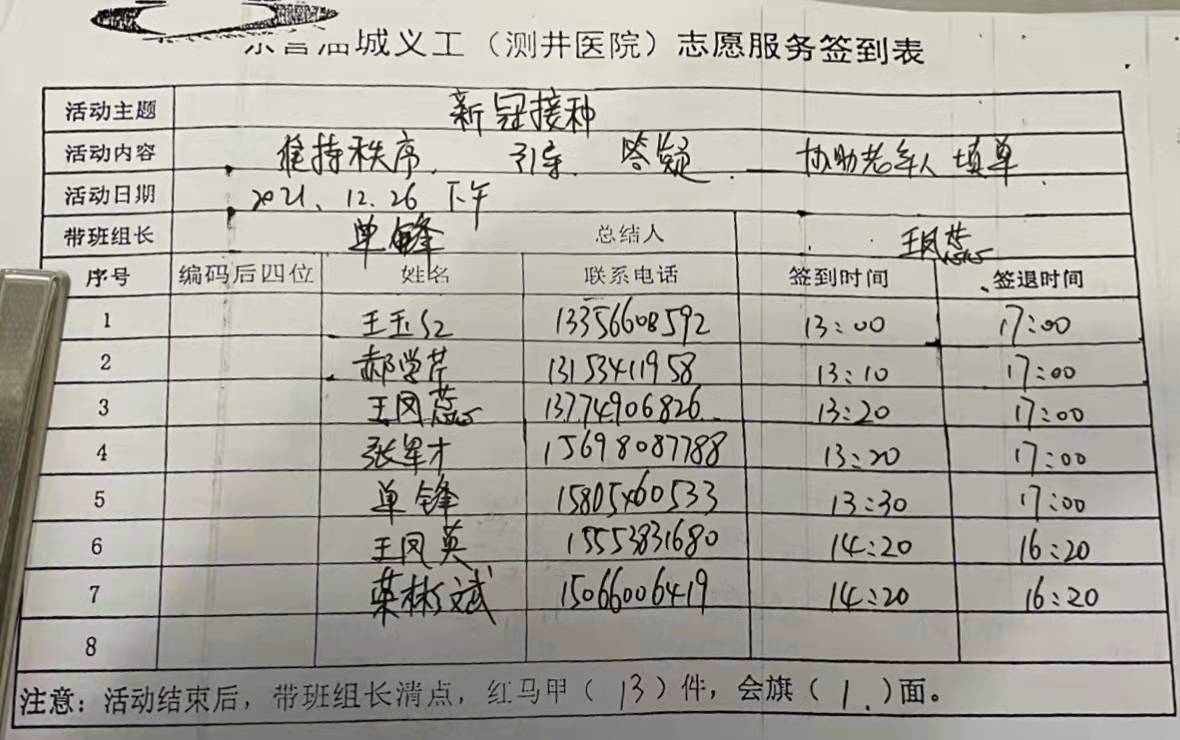 东营油城义工（测井医院）志愿服务签到表
活动主题 新冠接种
活动内容 维持秩序、引导、答疑、协助老年人填单
活动日期 2021、12.26 下午
带班组长 单锋 总结人 王凤蕊
序号 编码后四位 姓名 联系电话 签到时间 签退时间
1 王玉红 13356608592 13:00 17:00
2 郝学芹 13153411958 13:10 17:00
3 王凤蕊 13774906826 13:20 17:00
4 张军才 15698087788 13:20 17:00
5 单锋 15805460533 13:30 17:00
6 王凤英 15553831680 14:20 16:20
7 荣彬斌 15066006419 14:20 16:20
8
注意：活动结束后，带班组长清点，红马甲（13）件，会旗（1）面。